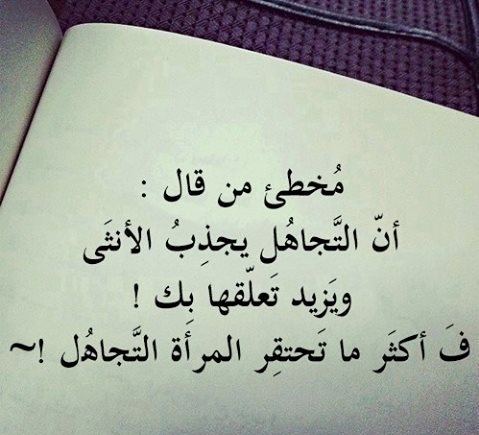 مُخطئ من قال :
أنّ التَّجاهُل يجذِبُ الأنثَى
ويَزيد تَعلّقها بِك !
فَ أكثَر ما تَحتقِر المرأة التَّجاهُل !~